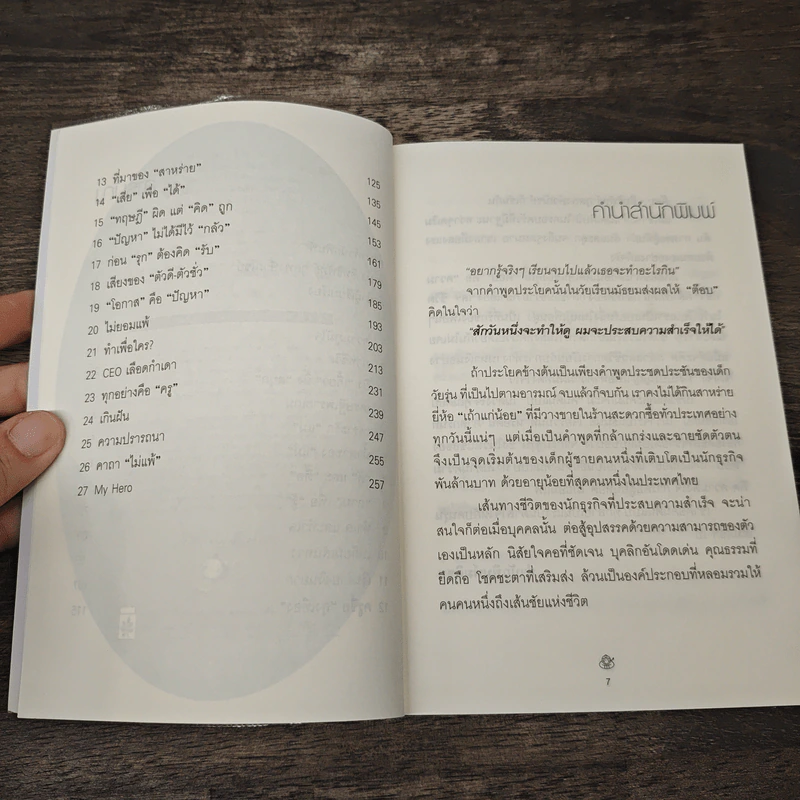 13 ที่มาของ "สาหร่าย" 125
14 "เสีย" เพื่อ "ได้" 135
15 "ทฤษฎี" ผิด แต่ "คิด" ถูก 145
16 "ปัญหา" ไม่ได้มีไว้ "กลัว" 153
17 ก่อน "รุก" ต้องคิด "รับ" 161
18 เสียงของ "ตัวดี-ตัวชั่ว" 179
19 "โอกาส" คือ "ปัญหา" 185
20 ไม่ยอมแพ้ 193
21 ทำเพื่อใคร? 203
22 CEO เลือดกำเดา 213
23 ทุกอย่างคือ "ครู" 231
24 เกินฝัน 239
25 ความปรารถนา 247
26 คาถา "ไม่แพ้" 255
27 My Hero 257
คำนำสำนักพิมพ์
"อยากรู้จริงๆ เรียนจบไปแล้วเธอจะทำอะไรกิน"
จากคำพูดประโยคนั้นในวัยเรียนมัธยมส่งผลให้ "ต๊อบ"
คิดในใจว่า
"สักวันหนึ่งจะทำให้ดู ผมจะประสบความสำเร็จให้ได้"
ถ้าประโยคข้างต้นเป็นเพียงคำพูดประชดประชันของเด็ก
วัยรุ่น ที่เป็นไปตามอารมณ์ จบแล้วก็จบกัน เราคงไม่ได้กินสาหร่าย
ยี่ห้อ "เถ้าแก่น้อย" ที่มีวางขายในร้านสะดวกซื้อทั่วประเทศอย่าง
ทุกวันนี้แน่ๆ แต่เมื่อเป็นคำพูดที่กล้าแกร่งและฉายชัดตัวตน
จึงเป็นจุดเริ่มต้นของเด็กผู้ชายคนหนึ่งที่เติบโตเป็นนักธุรกิจ
พันล้านบาท ด้วยอายุน้อยที่สุดคนหนึ่งในประเทศไทย
เส้นทางชีวิตของนักธุรกิจที่ประสบความสำเร็จ จะน่า
สนใจก็ต่อเมื่อบุคคลนั้น ต่อสู้อุปสรรคด้วยความสามารถของตัว
เองเป็นหลัก นิสัยใจคอที่ชัดเจน บุคลิกอันโดดเด่น คุณธรรมที่
ยึดถือ โชคชะตาที่เสริมส่ง ล้วนเป็นองค์ประกอบที่หลอมรวมให้
คนคนหนึ่งถึงเส้นชัยแห่งชีวิต
7